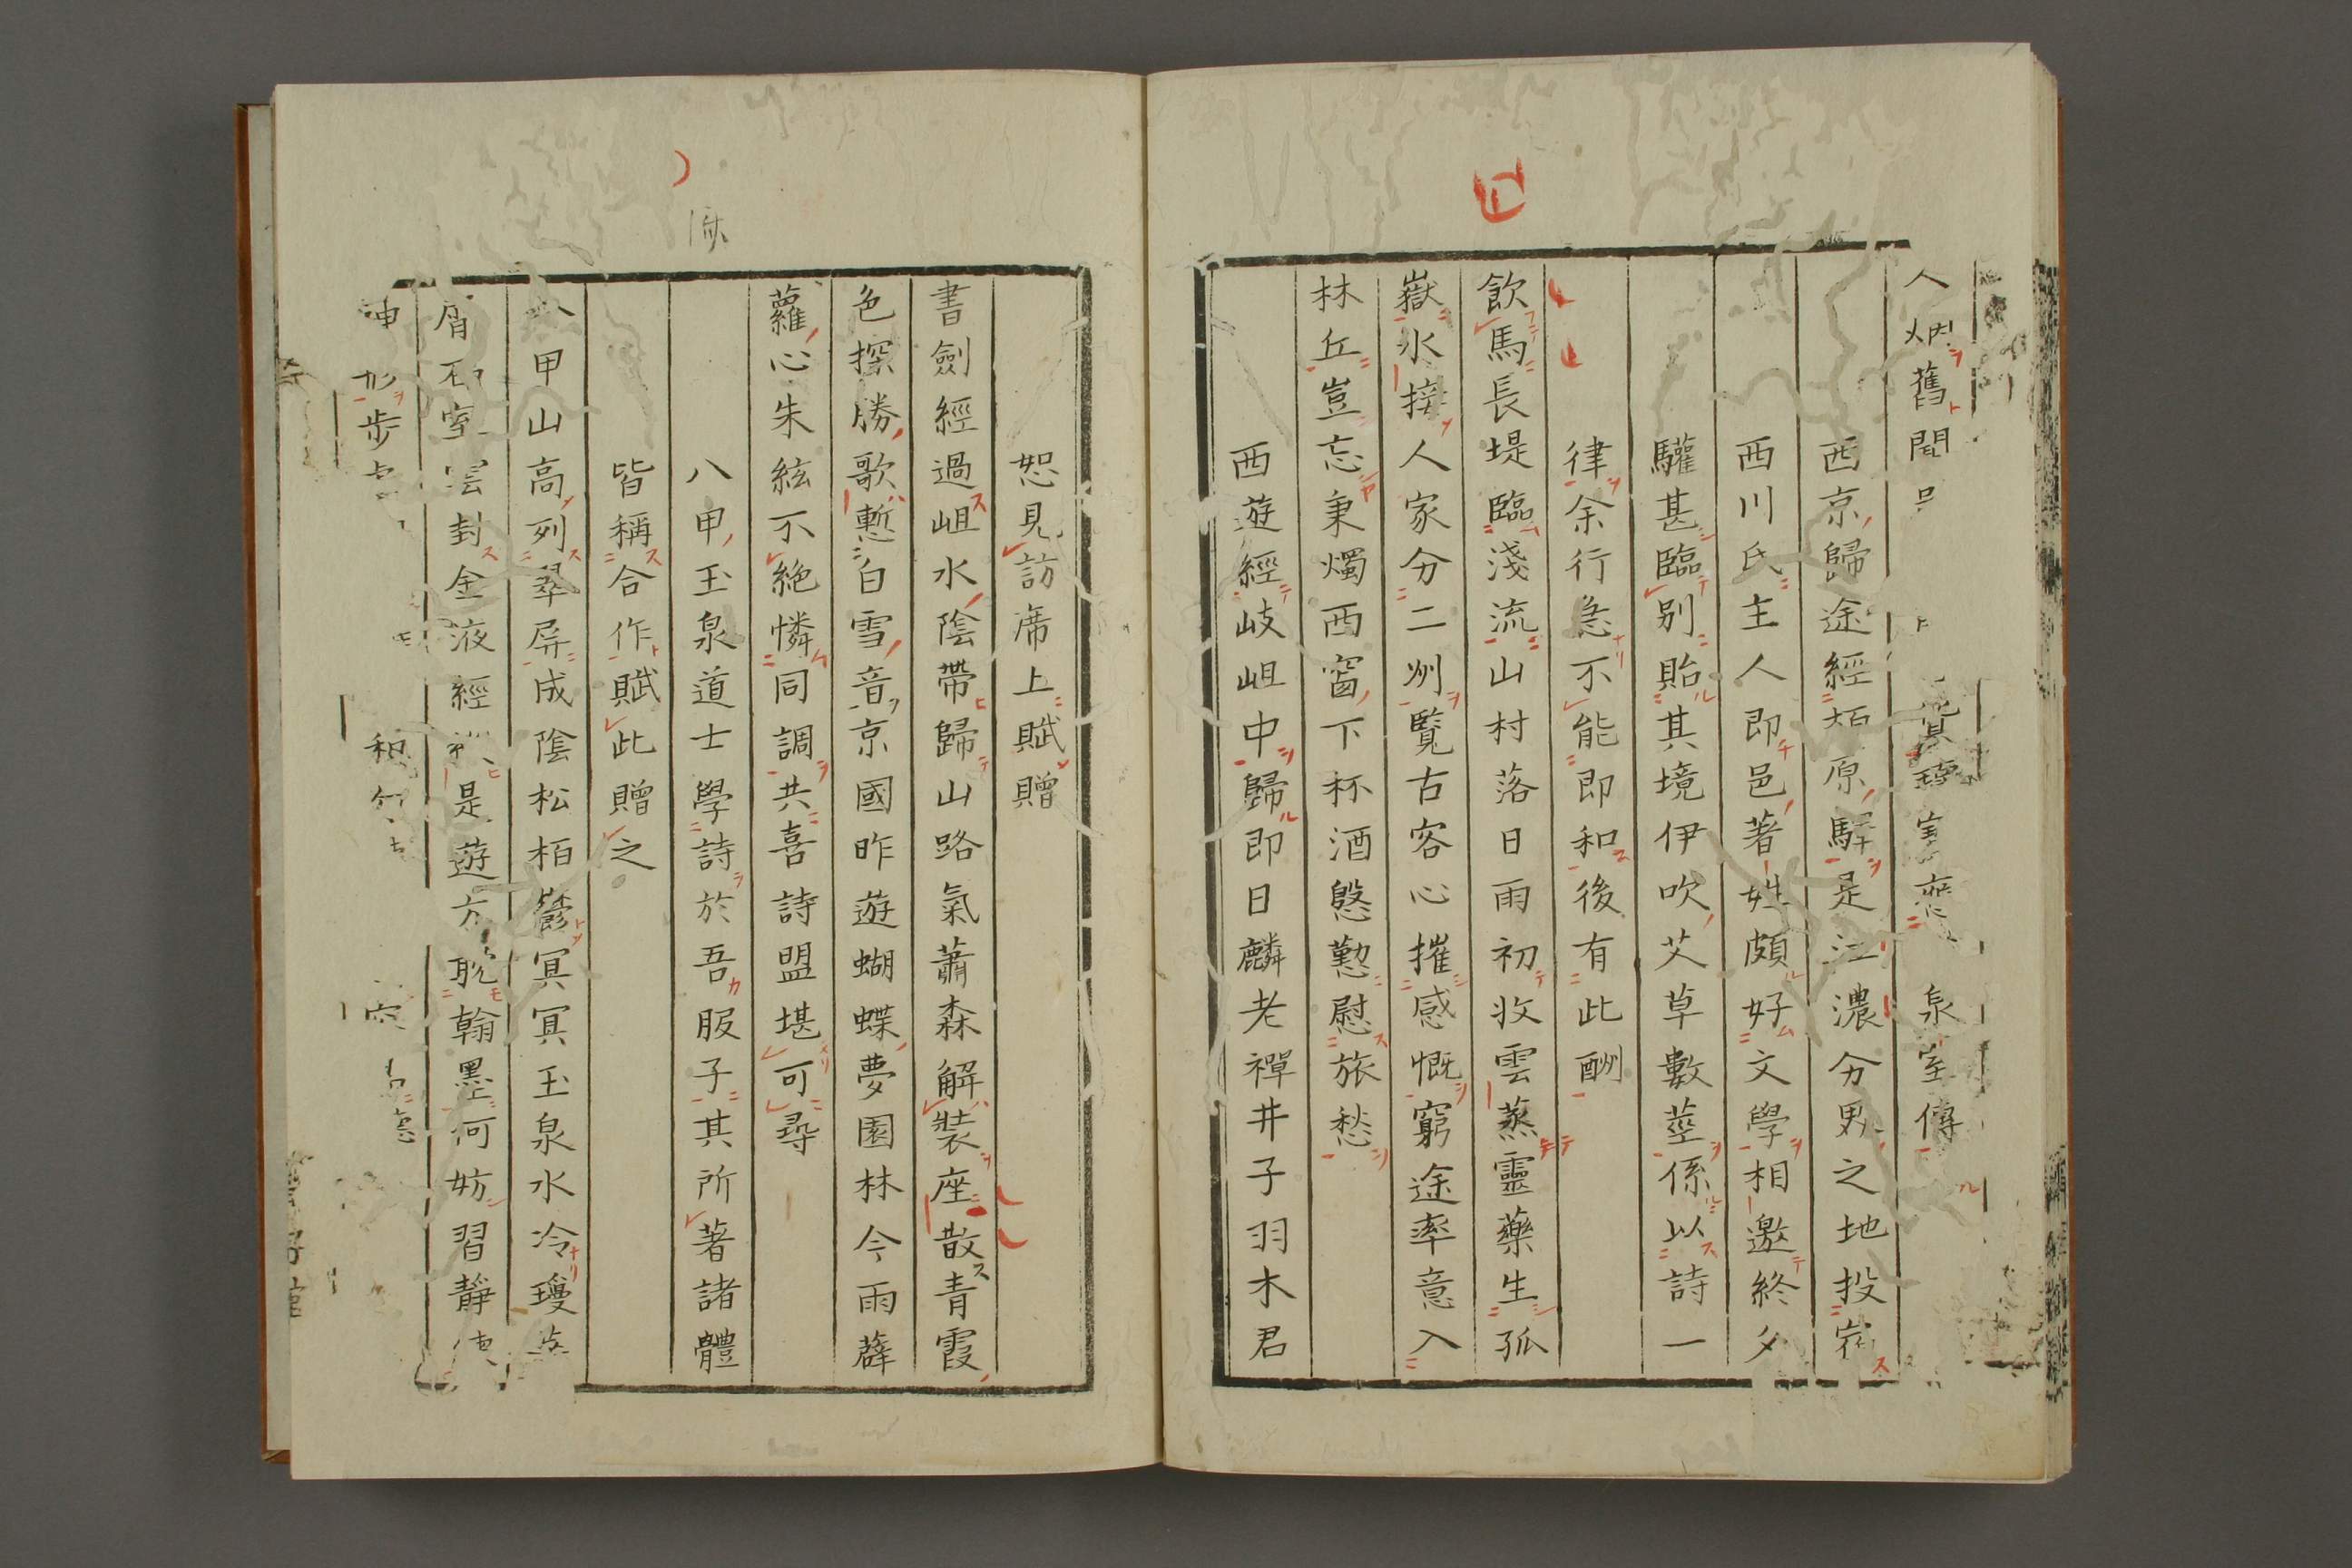 人烟舊聞
泉室傳
西京歸途經柏原驛是江濃分界之地投宿
西川氏主人即邑著姓頗好文學相邀終夕
驩甚臨別貽其境伊吹艾草數莖係以詩一
律余行急不能即和後有此酬
飲馬長堤臨淺流山村落日雨初收雲蒸靈藥生孤
嶽水接人家分二州覽古客心摧感慨窮途率意入
林丘豈忘秉燭西窗下杯酒慇懃慰旅愁
西遊經岐岨中歸即日麟老禪井子羽木君
恕見訪席上賦贈
書劍經過岨水陰帶歸山路氣蕭森解裝座散青霞
色探勝歌慙白雪音京國昨遊蝴蝶夢園林今雨薜
蘿心朱絃不絶憐同調共喜詩盟堪可尋
八甲玉泉道士學詩於吾服子其所著諸體
皆稱合作賦此贈之
八甲山高列翠屏成陰松柏鬱冥冥玉泉水冷瓊
屑石室雲封金液經是遊方耽翰墨何妨習靜
神形步